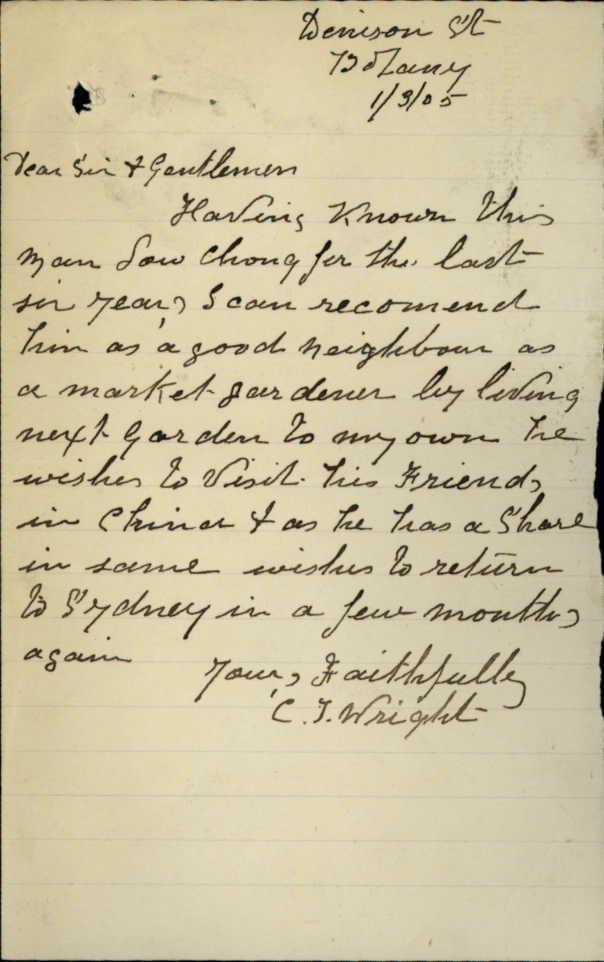 Denison St
Botany
1/3/05
Dear Sir & Gentlemen
Having Known this
man Sow Chong for the last
six years I can recomend
him as a good neighbour as
a market gardener by living
next Garden to my own he
wishes to Visit his Friends
in China & as he has a Share
in same wishes to return
to Sydney in a few months
again
Yours Faithfully
C. J. Wright